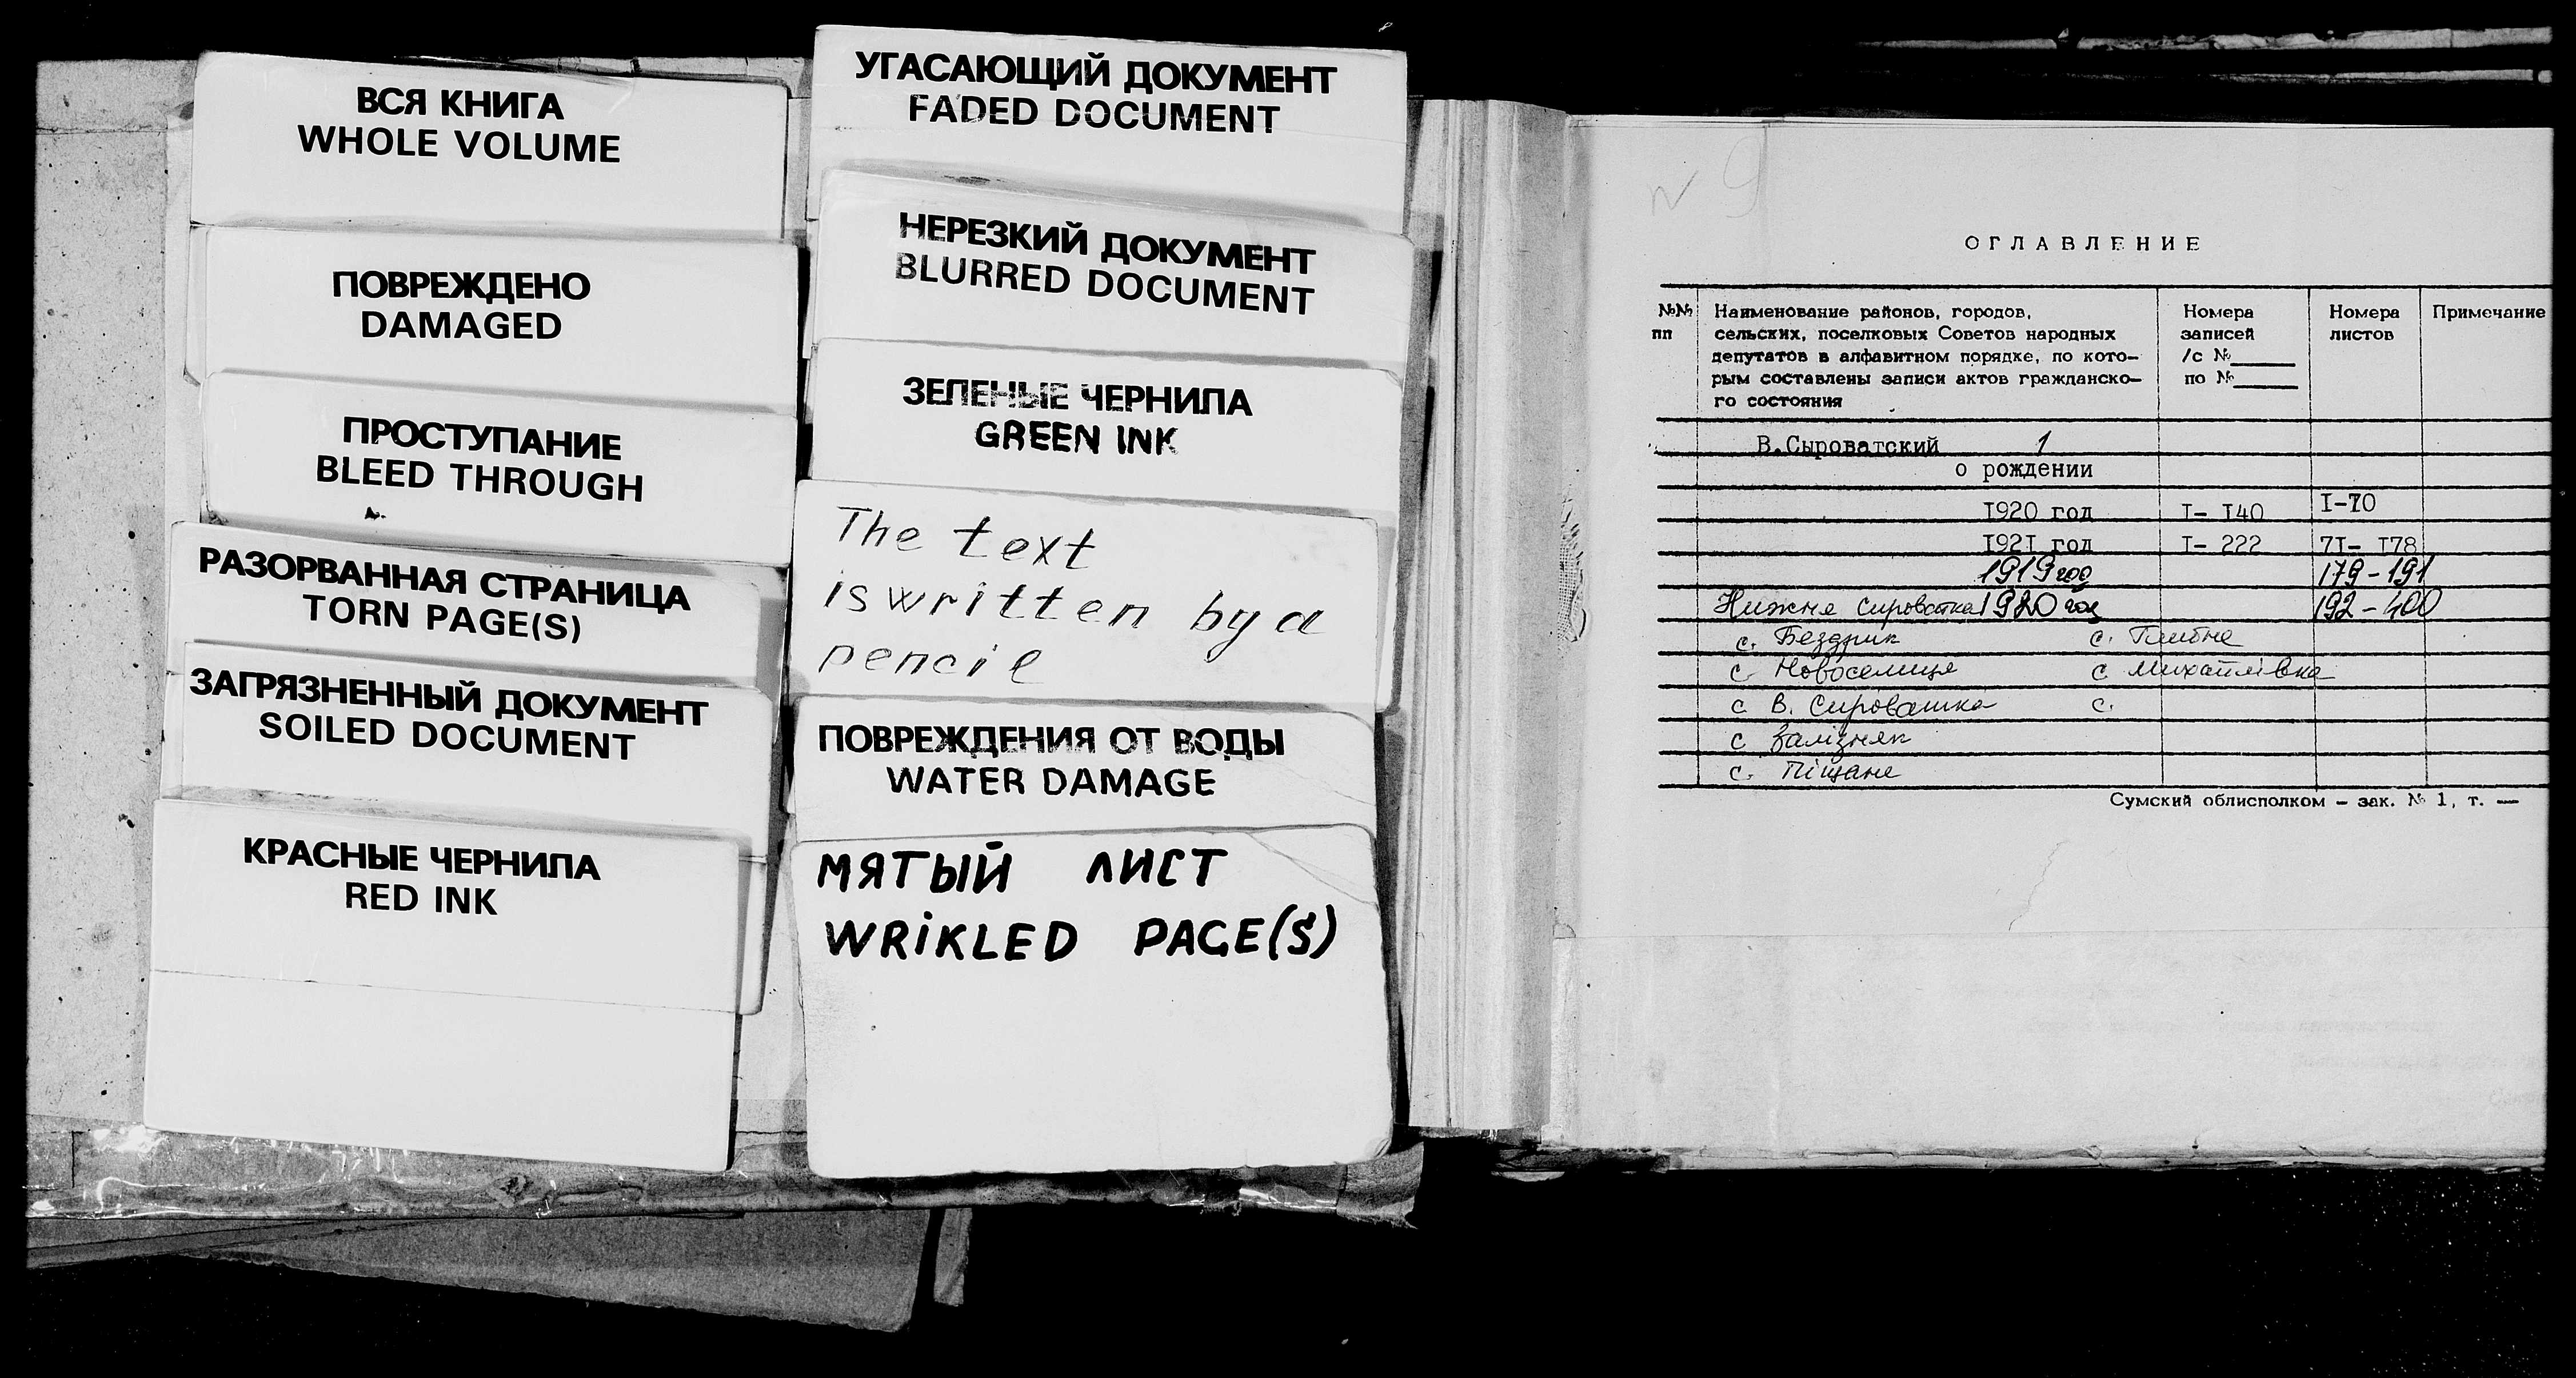 ВСЯ КНИГА
WHOLE VOLUME
ПОВРЕЖДЕНО
DAMAGED
ПРОСТУПАНИЕ
BLEED THROUGH
РАЗОРВАННАЯ СТРАНИЦА
TORN PAGE(S)
ЗАГРЯЗНЕННЫЙ ДОКУМЕНТ
SOILED DOCUMENT
КРАСНЫЕ ЧЕРНИЛА
RED INK
УГАСАЮЩИЙ ДОКУМЕНТ
FADED DOCUMENT
НЕРЕЗКИЙ ДОКУМЕНТ
BLURRED DOCUMENT
ЗЕЛЕНЫЕ ЧЕРНИЛА
GREEN INK
The text
is written by a
pencil
ПОВРЕЖДЕНИЯ ОТ ВОДЫ
WATER DAMAGE
МЯТЫЙ ЛИСТ
WRIKLED PAGE(S)
N 9
ОГЛАВЛЕНИЕ
№№ пп
Наименование районов, городов,
сельских, поселковых Советов народных
депутатов в алфавитном порядке, по кото-
рым составлены записи актов гражданско-
го состояния
Номера
записей
/с №
по №
Номера
листов
Примечание
В.Сыроватский 1
о рождении
I920 год I- I40 I-70
I92I год I- 222 7I- I78
1919 год 179-191
Нижня Сироватка 1920 год 192-400
с. Бездрик с.
с. Новоселиця с Михайлівка
с В. Сироватка с.
с Залізняк
с. Піщане
Сумский облисполком - зак. № 1, т. —